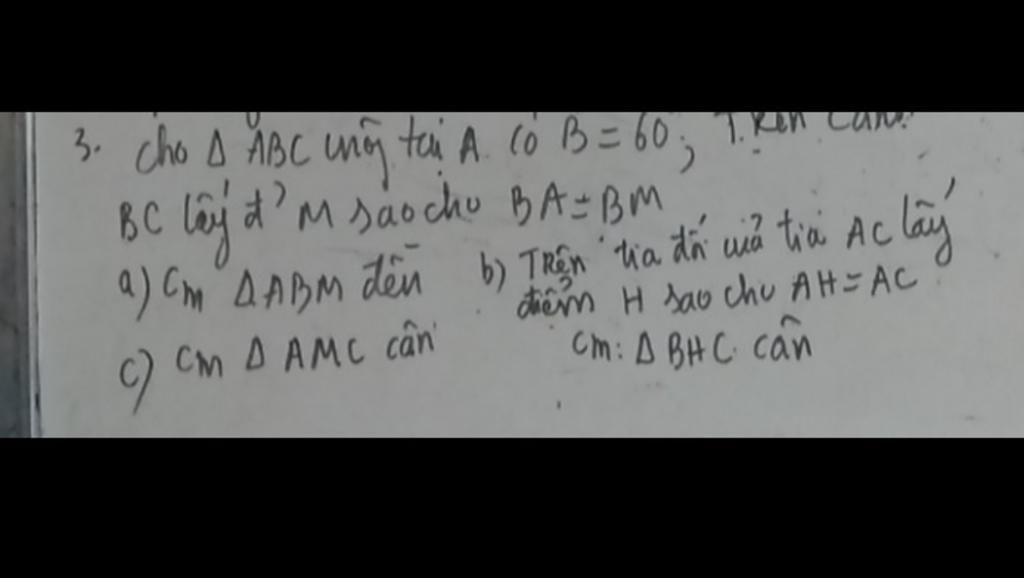 3. Cho Δ ABC vuông tại A. Có B = 60; Trên cạnh
BC lấy đ' M sao cho BA = BM
a) Cm ΔABM đều
b) TRên tia đối của tia AC lấy
điểm H sao cho AH = AC
Cm: Δ BHC cân
c) Cm Δ AMC cân